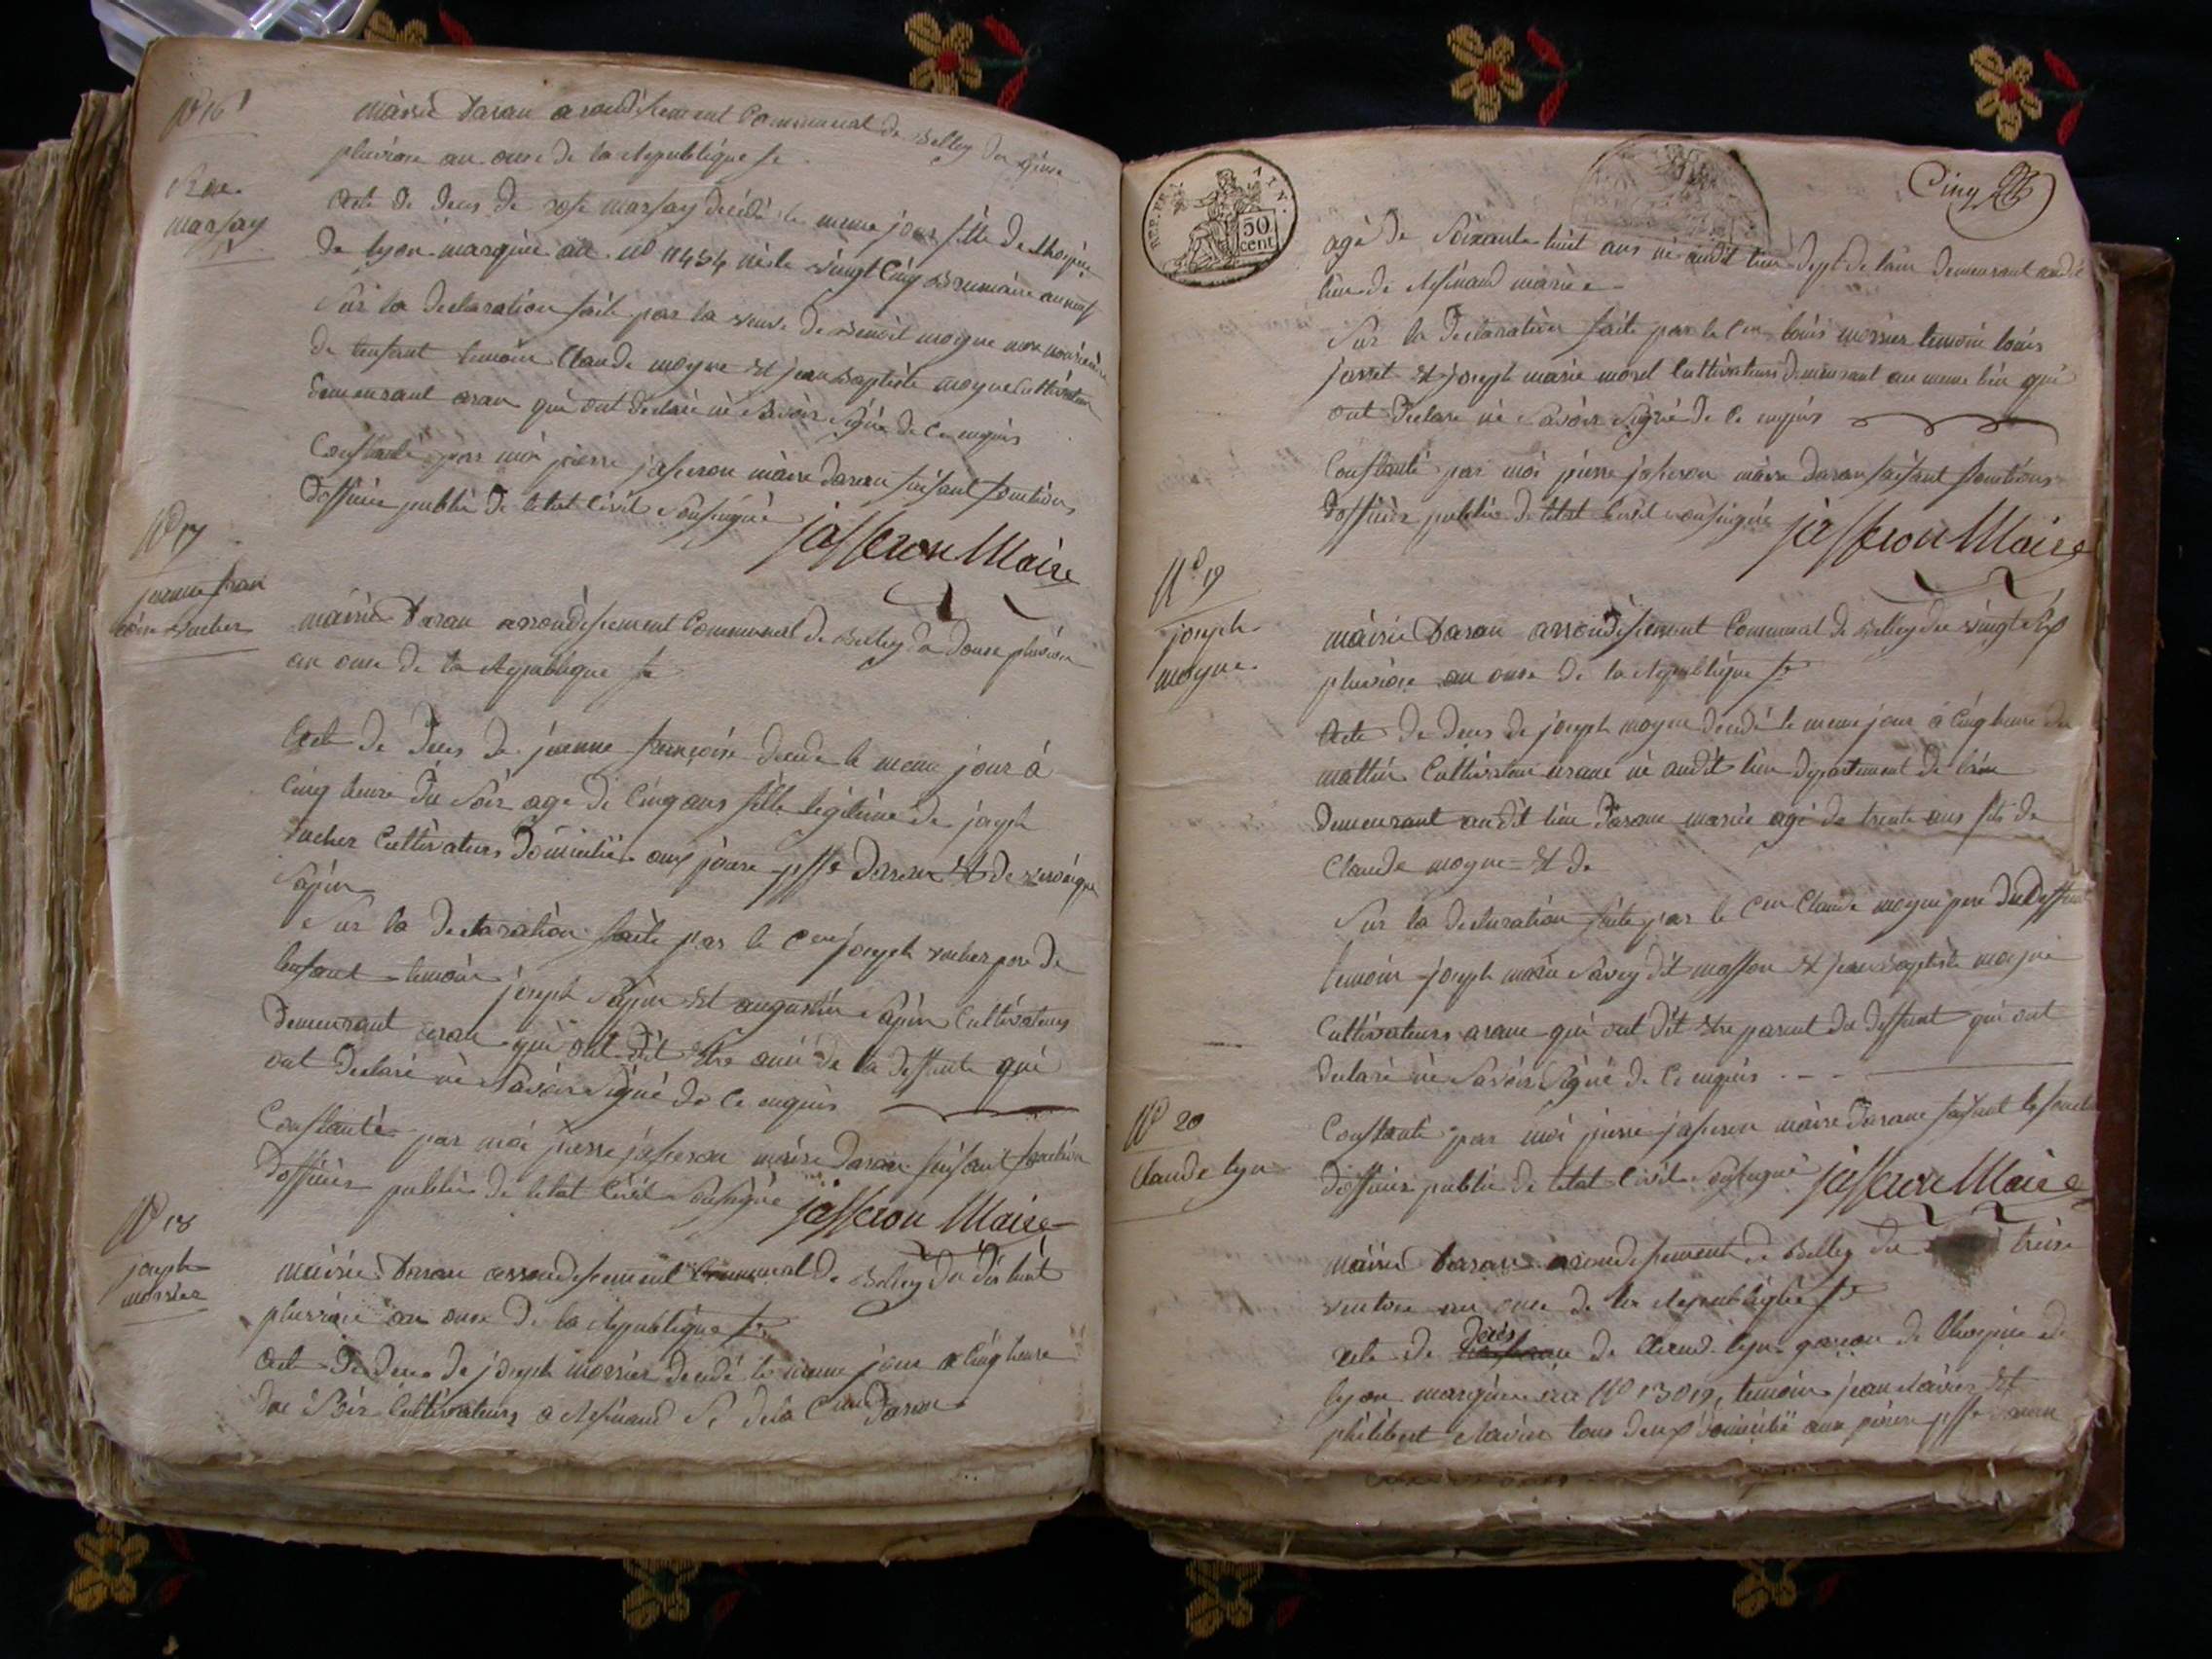 No 16
Rose
marsay
mairie Daran arondissement Communal de Belley du
pluviose an onse de la Republique fr
acte de deces de rose marsay décédé le meme jour fille de lhospice
de lyon marquée au no 11454 née le vingt cinq Brumaire an neuf
Sur la declaration faite par la veuve de Benoit moyne
de lenfant temoin Claude moyne et jean Baptiste moyne Cultivateur
demeurant aran qui ont declaré ne savoir signé de ce enquis
Constaté par moi pierre jasseron maire daran faisant fonction
dofficier public de letat civil soussigné
jasseron Maire
No 17
jeanne fran
coise vucher
mairie Daran arrondissement Communal de Belley du douse pluviose
an onse de la Republique fr
acte de deces de jeanne françoise decede le meme jour à
Cinq heure du soir age de Cinq ans fille legitime de joseph
vucher Cultivateurs domicilié aux psse daran et de
Sapin
Sur la declaration faite par le Cen joseph vucher pere de
lenfant temoin joseph Sapin et augustin Sapin Cultivateurs
demeurant aran qui ont dit etre amie de la deffunte qui
ont declaré ne Savoir signé de Ce enquis
Constanté par moi pierre jasseron maire daran faisant fonction
dofficier public de letat Civil soussigné
jasseron Maire
No 18
joseph
morrier
mairie Daran arrondissement Communal de Belley du dix huit
pluviose an onse de la Republique fr
acte de deces de joseph morrier decedé le meme jour a Cinq heure
du Soir Cultivateurs a Resinand Cne Daran
REP. FRA.
AIN.
50
cent
Cinq
agé de Soixante huit ans né audit lieu dept de lain demeurant audit
lieu de Resinand marié
Sur la declaration faite par le Cen louis morrier temoin louis
jarret et joseph marie morel Cultivateurs demeurant au meme lieu qui
ont declare ne Savoir Signé de Ce enquis
Constanté par moi pierre jasseron maire daran faisant fonctions
dofficier public de letat Civil soussigné
jasseron Maire
No 19
joseph
moyne
mairie Daran arrondissement Communal de Belley du vingt six
pluviose an onse de la Republique fr
acte de deces de joseph moyne decedé le meme jour a Cinq heure du
mattin Cultivateur arane né audit lieu departement de lain
demeurant audit lieu Darane marié agé de trente ans fils de
Claude moyne et de
Sur la declaration faite par le Cen Claude moyne pere du deffunt
temoin joseph marie Savey dit masson et jean Baptiste moyne
Cultivateurs arane qui ont dit etre parent du deffunt qui ont
declaré ne Savoir Signé de Ce enquis
Constanté par moi pierre jasseron maire darane faisant les
dofficier public de letat Civil soussigné
jasseron Maire
No 20
Claude lyn
mairie Daran arondissement de Belley du treise
ventose an onse de la Republique fr
acte de deces de Claud lyn garcon de lhospice de
lyon marquée au No 13019, temoin jean Ravier et
philibert Ravier tous deux domicilié aux psse daran